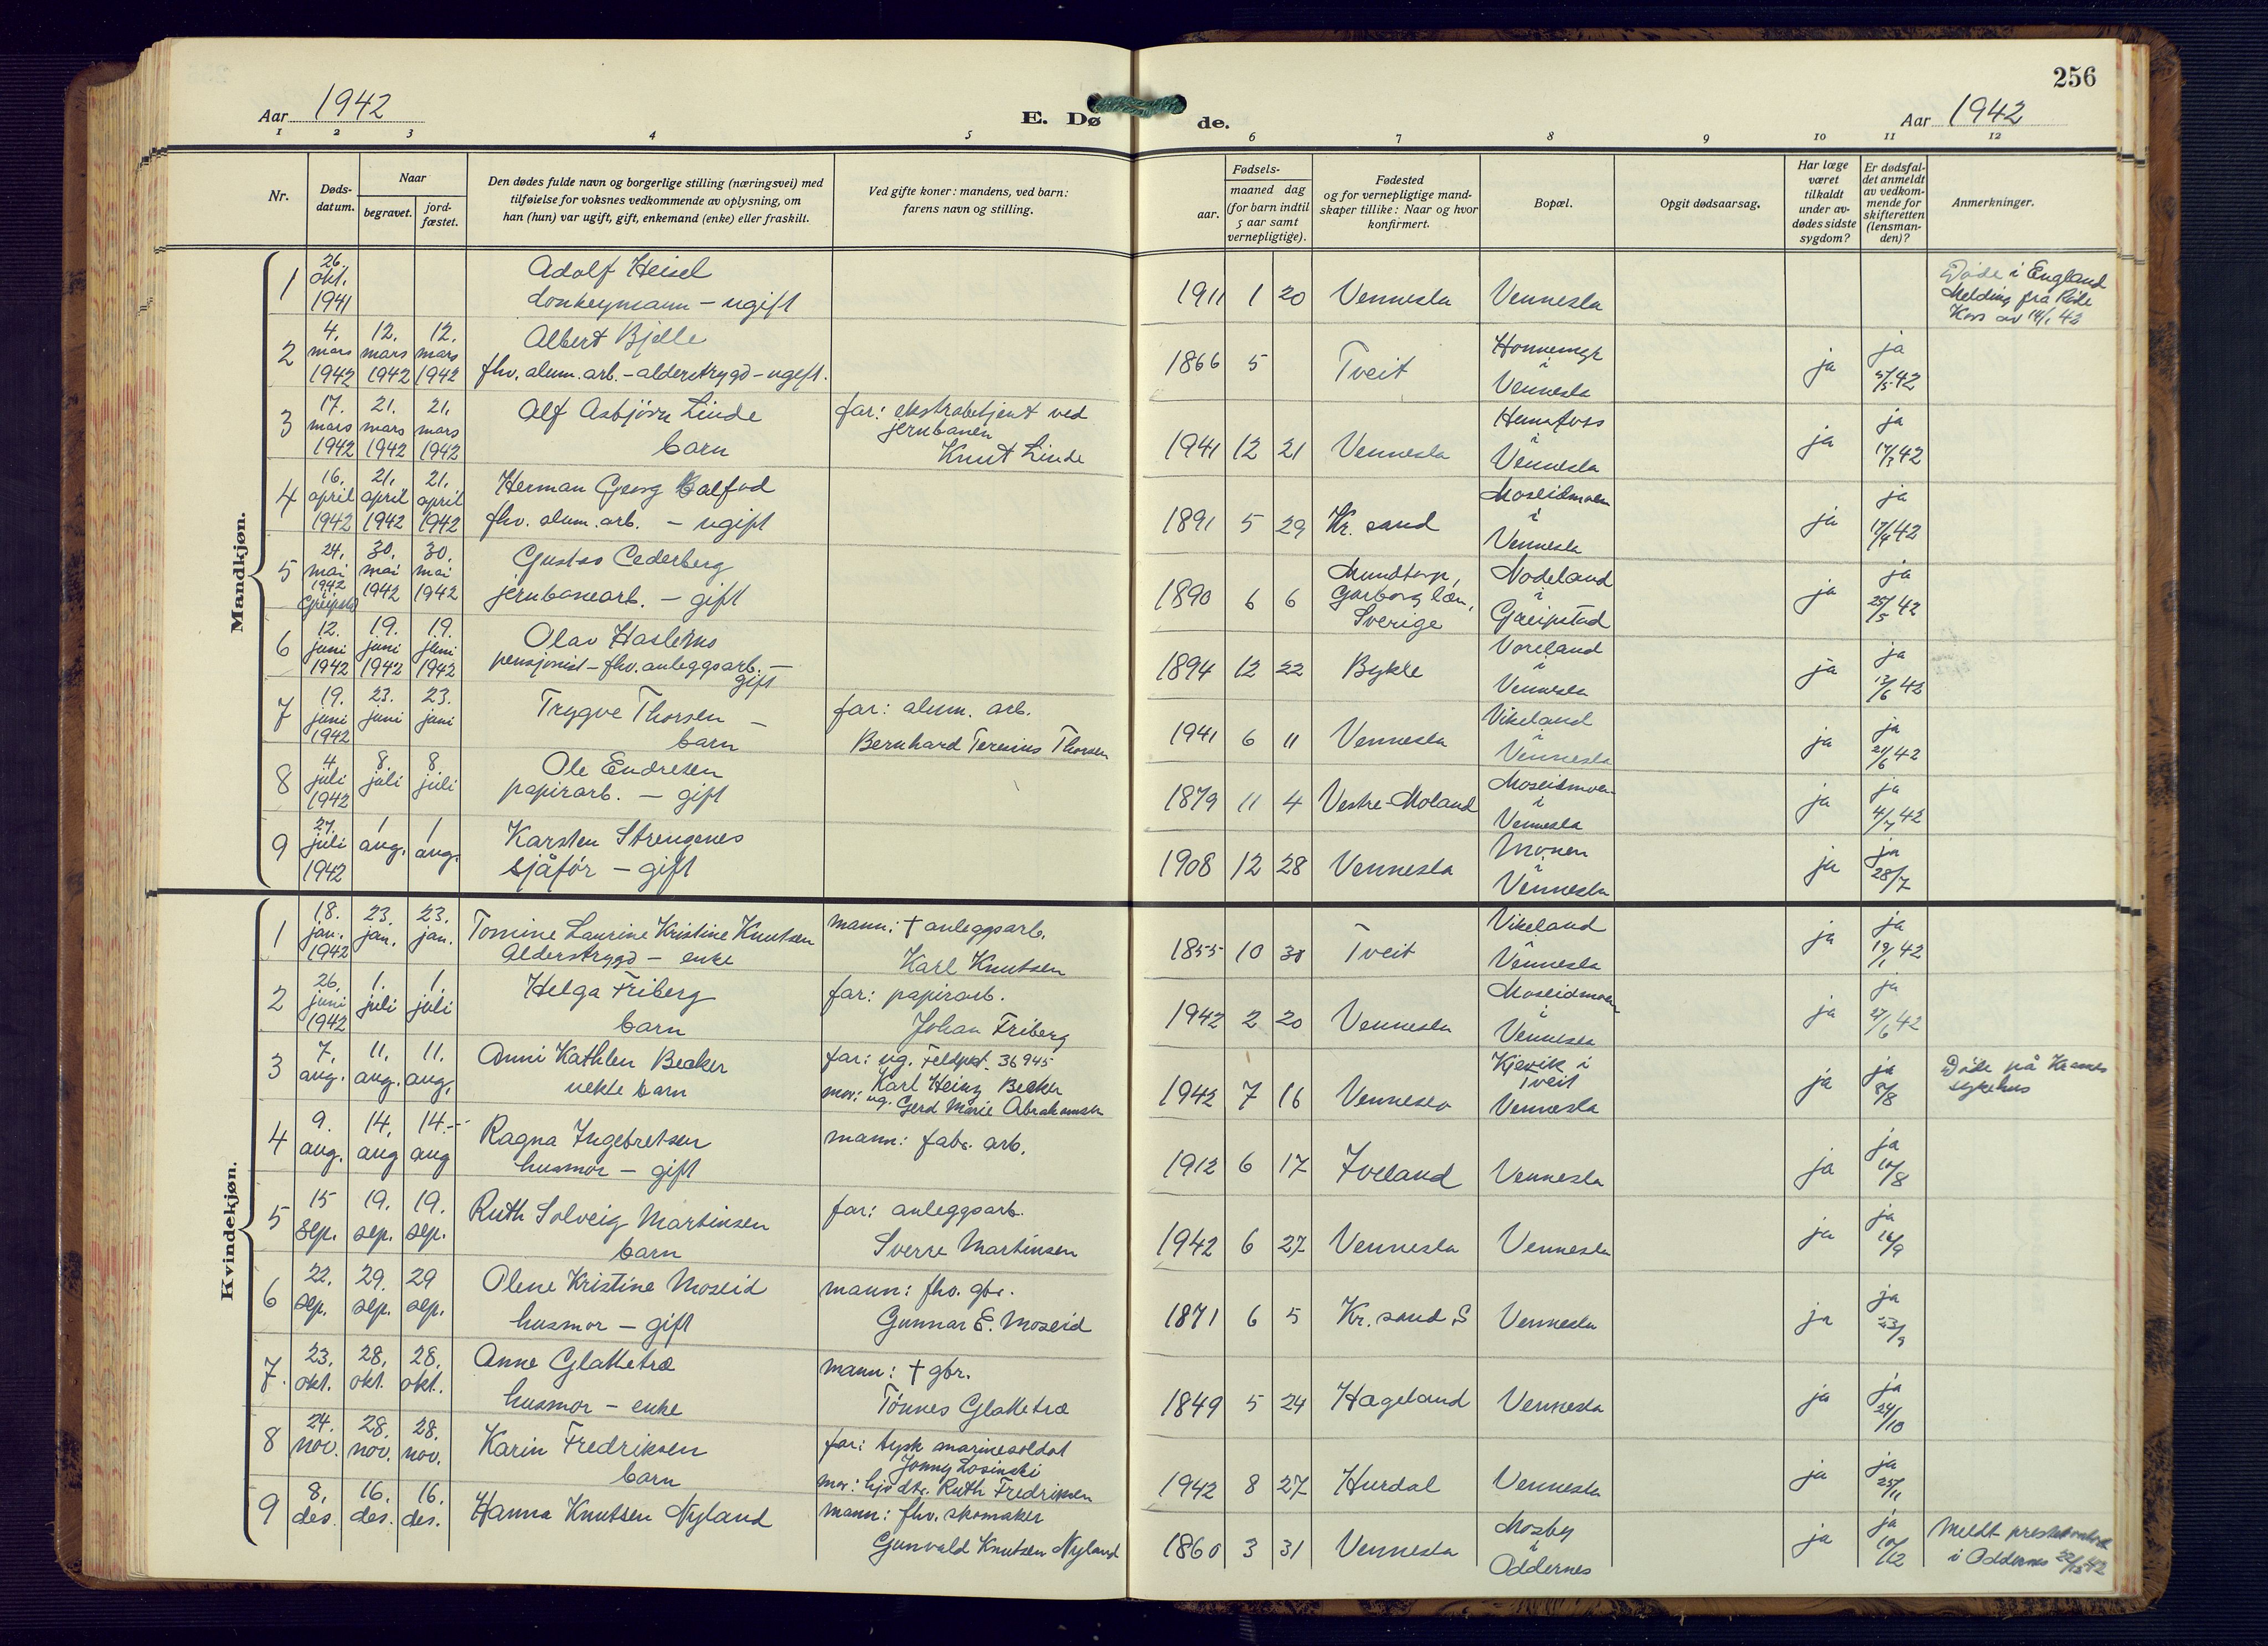 256
Aar 1942
E. Dø
de.
Aar 1942
1 2 3 4 5 6 7 8 9 10 11 12
Nr.
Døds-
datum.
Naar
begravet.
jord-
fæstet.
Den dødes fulde navn og borgerlige stilling (næringsvei) med
tilføielse for voksnes vedkommende av oplysning, om
han (hun) var ugift, gift, enkemand (enke) eller fraskilt.
Ved gifte koner: mandens, ved barn:
farens navn og stilling.
Fødsels-
aar.
maaned dag
(for barn indtil
5 aar samt
vernepligtige).
Fødested
og for vernepligtige mand-
skaper tillike: Naar og hvor
konfirmert.
Bopæl.
Opgit dødsaarsag.
Har læge
været
tilkaldt
under av-
dødes sidste
sygdom?
Er dødsfal-
det anmeldt
av vedkom-
mende for
skifteretten
(lensman-
den)?
Anmerkninger.
Mandkjøn.
1 26. okt. 1941
Adolf Heisel
donkeymann – ugift
1911 1 20 Vennesla Vennesla
Døde i England
Melding fra Røde
Kors av 14/1 42
2 4. mars 1942 12. mars 1942 12. mars 1942
Albert Bjelle
fhv. alum. arb. – alderstrygd – ugift.
1866 5 Tveit
i
Vennesla
ja ja
42
3 17. mars 1942 21. mars 1942 21. mars 1942
Alf Asbjörn Linde
barn
far: ekstrabetjent ved
jernbanen
Knut Linde
1941 12 21 Vennesla
Hunsfoss
i
Vennesla
ja ja
17/3 42
4 16. april 1942 21. april 1942 21. april 1942
Herman Georg
fhv. alum. arb. – ugift
1891 5 29 Kr. sand
Moseidmoen
i
Vennesla
ja ja
17/4 42
5 24. mai 1942 i Greipstad 30. mai 1942 30. mai 1942
Gustav Cederberg
jernbanearb. – gift
1890 6 6
Sverige
Nodeland
i
Greipstad
ja ja
25/5 42
6 12. juni 1942 19. juni 1942 19. juni 1942
Olav
pensjonist – fhv. anleggsarb. –
gift
1894 12 22 Bykle
Voreland
i
Vennesla
ja ja
13/6 42
7 19. juni 1942 23. juni 23. juni
Trygve Thorsen –
barn
far: alum. arb.
Bernhard Terenius Thorsen
1941 6 11 Vennesla
Vikeland
i
Vennesla
ja ja
21/6 42
8 4. juli 1942 8. juli 8. juli
Ole Endresen
papirarb. – gift
1879 11 4 Vestre-Moland
Moseidmoen
i
Vennesla
ja ja
4/7 42
9 27. juli 1942 1 aug. 1 aug.
Karsten Strengenes
sjåför – gift
1908 12 28 Vennesla
Monen
i
Vennesla
ja ja
28/7
Kvindekjøn.
1 18. jan. 1942 23. jan. 23. jan.
Tomine Laurine Kristine Knutsen
Alderstrygd – enke
mann: † anleggsarb.
Karl Knutsen
1855 10 30 Tveit
Vikeland
i
Vennesla
ja ja
19/1 42
2 26. juni 1942 1. juli 1. juli
Helga Friberg
barn
far: papirarb.
Johan Friberg
1942 2 20 Vennesla
Moseidmoen
i
Vennesla
ja ja
27/6 42
3 7. aug. 11. aug. 11. aug.
Anni Kathlen Becker
uekte barn
far: ug. Feldpost. 36945
Karl Heinz Becker
mor: ug. Gerd Marie Abrahamsen
1942 7 16 Vennesla
Kjevik i
Tveit
Vennesla
ja ja
8/8
Døde på Kr.sands
sykehus
4 9. aug. 14. aug 14. aug
Ragna Ingebretsen
husmor – gift
mann: fabr. arb.
1912 6 17 Iveland Vennesla
ja ja
10/8
5 15 sep. 19. sep. 19. sep.
Ruth Solveig Martinsen
barn
far: anleggsarb.
Sverre Martinsen
1942 6 27 Vennesla Vennesla
ja ja
16/9
6 22. sep. 29. sep. 29 sep.
Olene Kristine Moseid
husmor – gift
mann: fhv. gbr.
Gunnar E. Moseid
1871 6 5 Kr. sand S Vennesla
ja ja
23/9
7. 23. okt. 28. okt. 28. okt.
Anne Glattetræ
husmor – enke
mann: † gbr.
Tönnes Glattetræ
1849 5 24 Hægeland Vennesla
ja ja
24/10
8 24. nov. 28. nov. 28. nov.
Karin Fredriksen
barn
far: tysk marinesoldat
Jonny Losinski
mor: hjv. dtr. Ruth Fredriksen
1942 8 27 Hurdal Vennesla
ja ja
25/11
9 8. des. 16. des. 16. des.
Hanna Knutsen Nyland
mann: fhv. skomaker
Gunvald Knutsen Nyland
1860 3 31 Vennesla
Mosby
i
Oddernes
ja ja
10/12
Meldt
i Oddernes 22/12 42